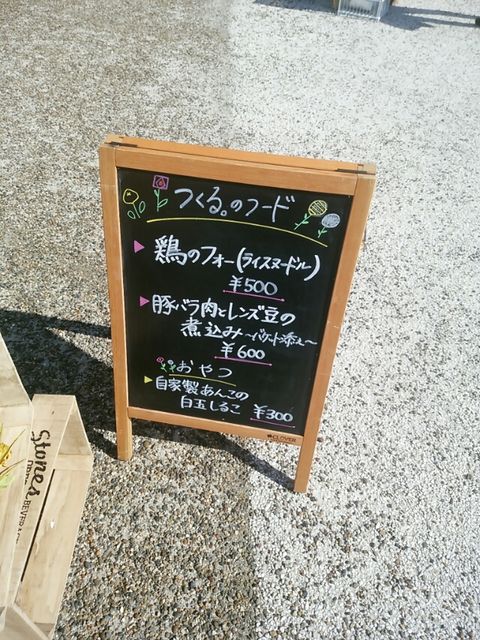 つくる。のフード
鶏のフォー(ライスヌードル)
¥500
豚バラ肉とレンズ豆の
煮込み〜バケット添え〜
¥600
おやつ
自家製あんこの
白玉しるこ ¥300
CLOVER
Stones